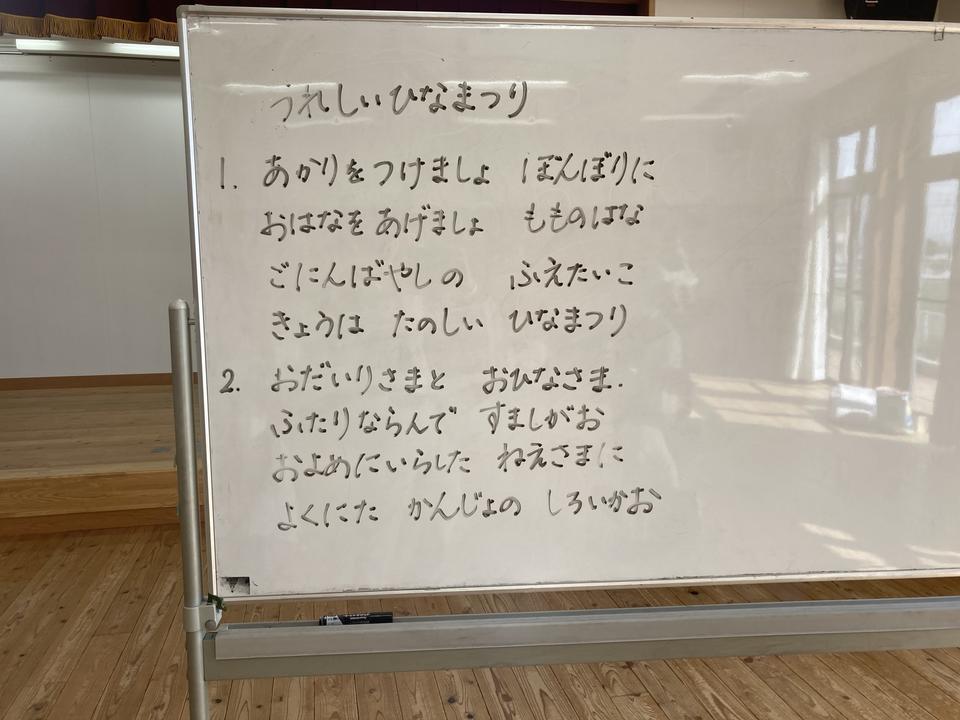 うれしいひなまつり
1. あかりをつけましょ ぼんぼりに
おはなを あげましょ もものはな
ごにんばやしの ふえたいこ
きょうは たのしい ひなまつり
2. おだいりさまと おひなさま.
ふたりならんで すましがお
およめにいらした ねえさまに
よくにた かんじょの しろいかお